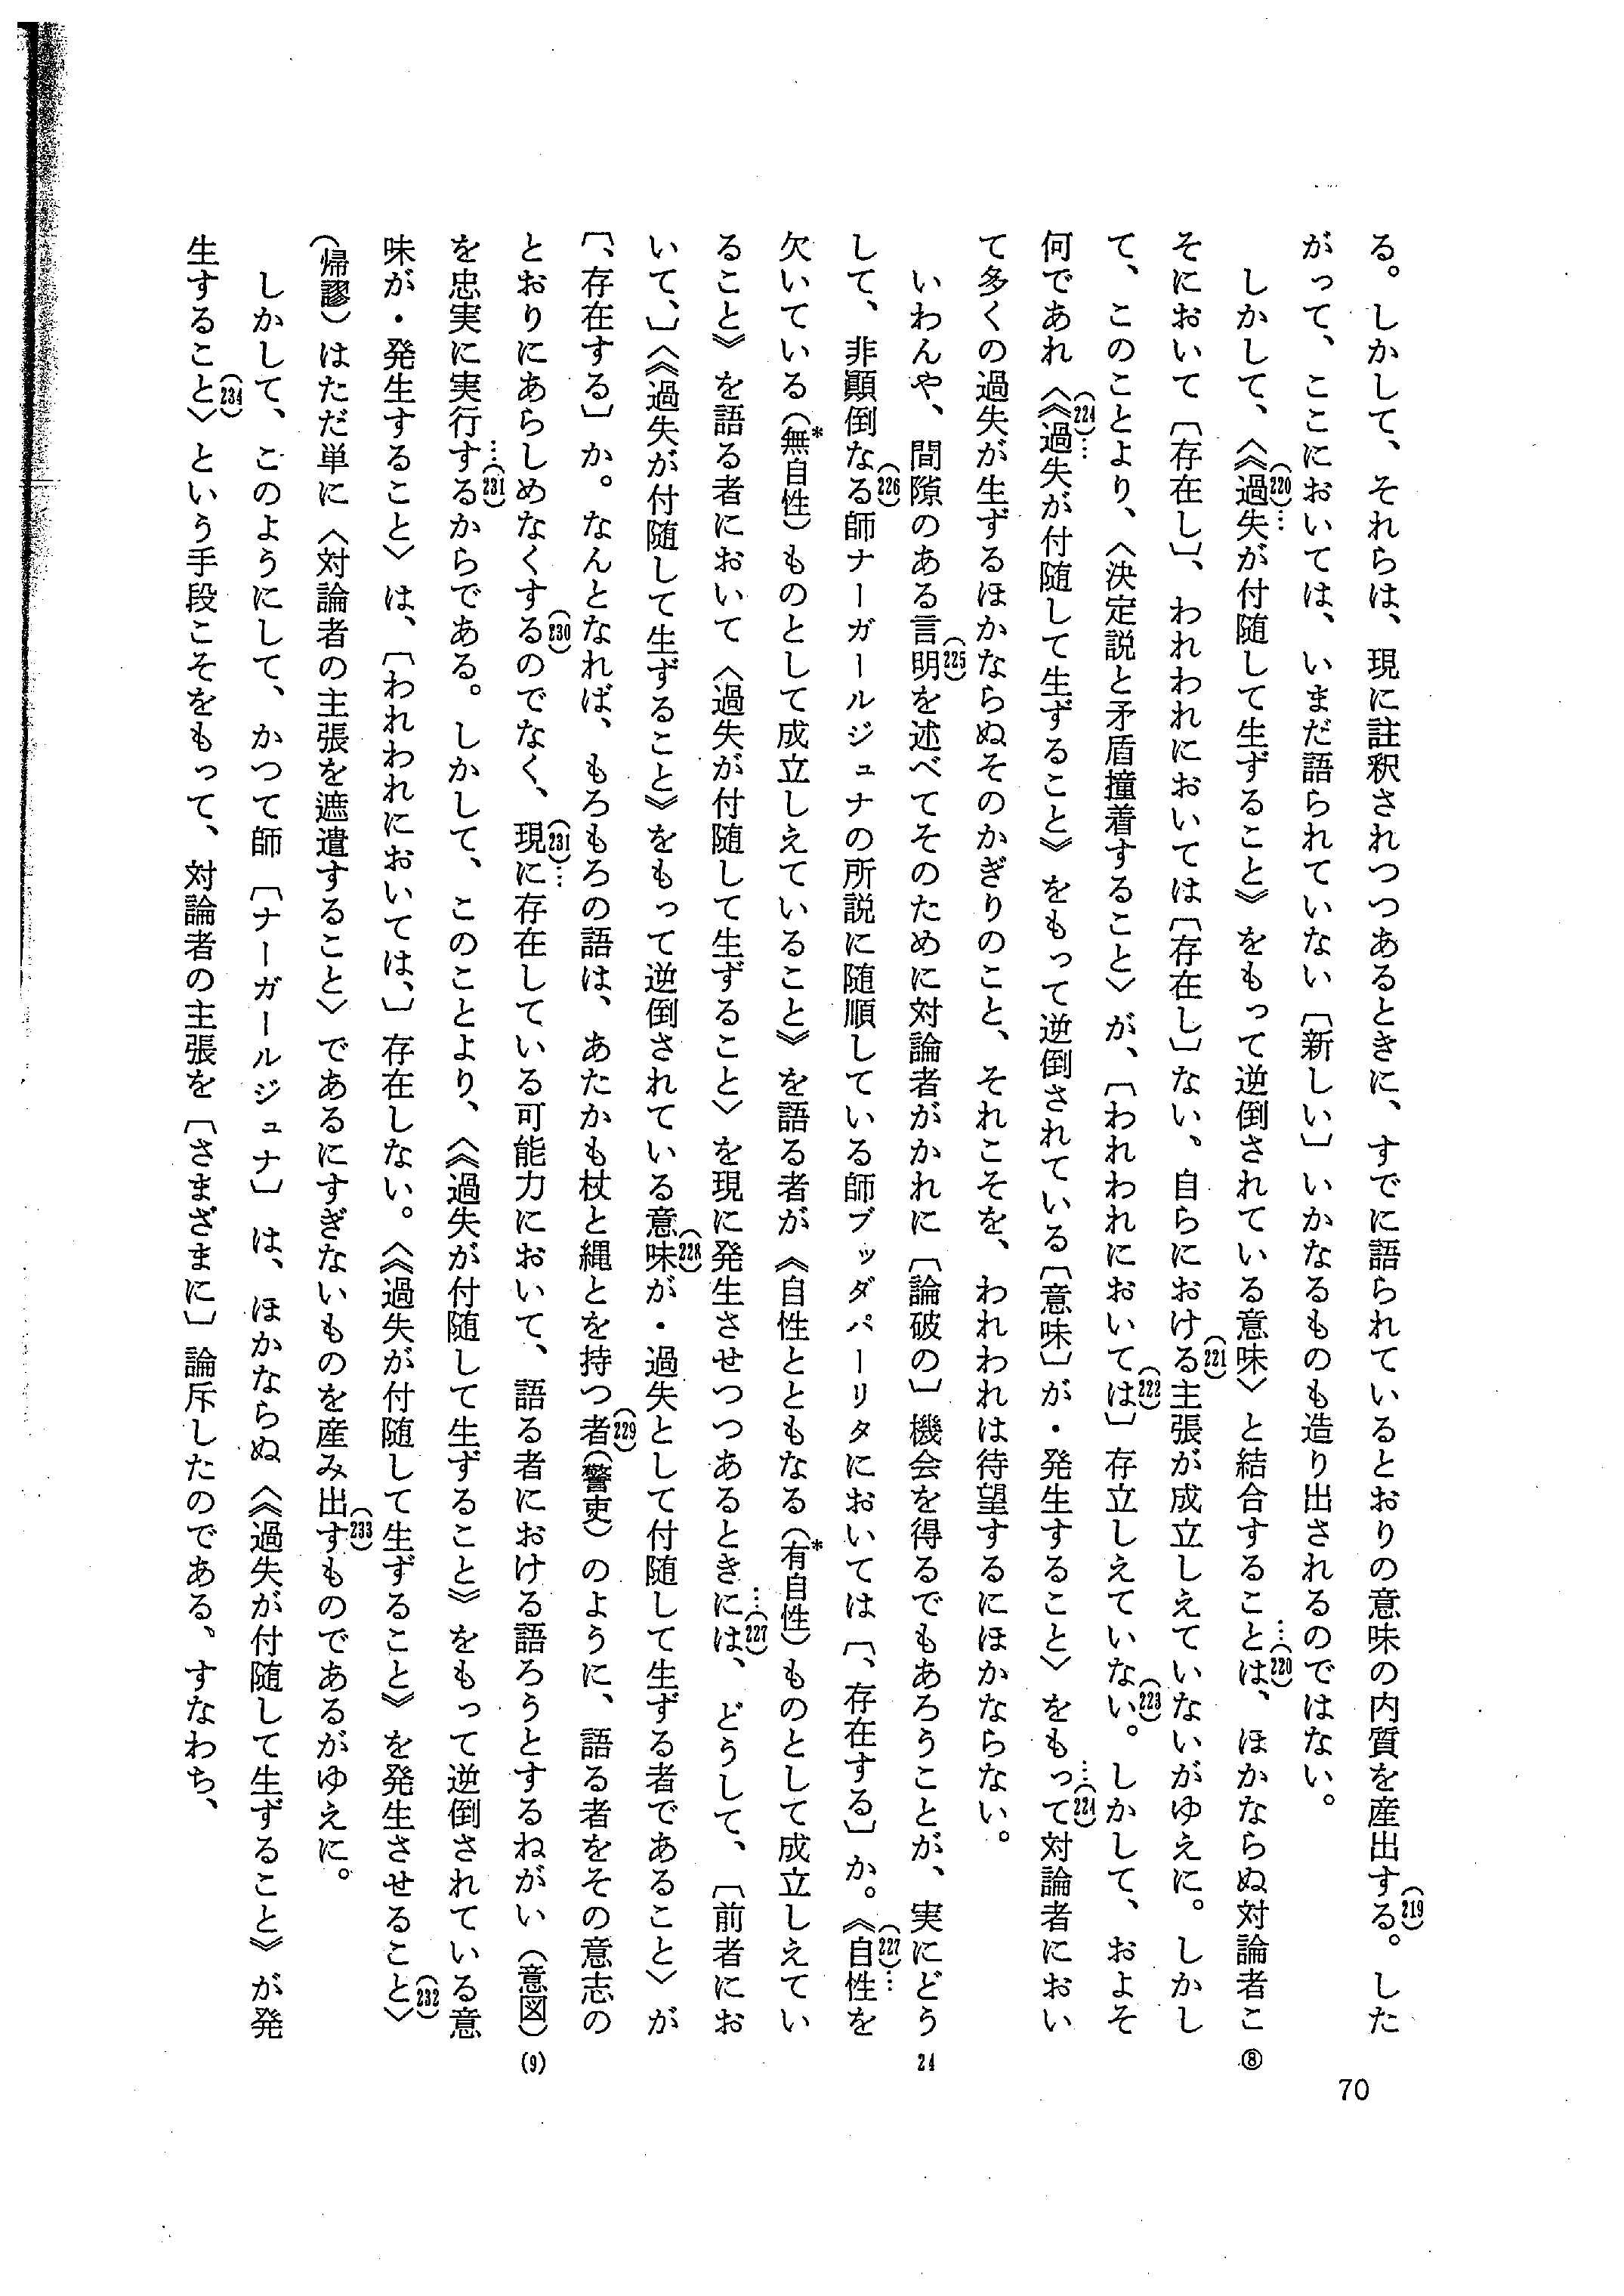 る。しかして、それらは、現に註釈されつつあるときに、すでに語られているとおりの意味の内質を産出する(219)。した
がって、ここにおいては、いまだ語られていない〔新しい〕いかなるものも造り出されるのではない。
しかして、〈《(220)…過失が付随して生ずること》をもって逆倒されている意味〉と結合することは…(220)、ほかならぬ対論者こ ⑧
そにおいて〔存在し〕、われわれにおいては〔存在し〕ない、自らにおける(221)主張が成立しえていないがゆえに。しかし
て、このことより、〈決定説と矛盾撞着すること〉が、〔われわれにおいては(222)〕存立しえていない(223)。しかして、およそ
何であれ〈《(224)…過失が付随して生ずること》をもって逆倒されている〔意味〕が・発生すること〉をもって…(224)対論者におい
て多くの過失が生ずるほかならぬそのかぎりのこと、それこそを、われわれは待望するにほかならない。
いわんや、間隙のある言明(225)を述べてそのために対論者がかれに〔論破の〕機会を得るでもあろうことが、実にどう 24
して、非顚倒なる(226)師ナーガールジュナの所説に随順している師ブッダパーリタにおいては〔、存在する〕か。《(227)…自性を
欠いている(*無自性)ものとして成立しえていること》を語る者が《自性とともなる(*有自性)ものとして成立しえてい
ること》を語る者において〈過失が付随して生ずること〉を現に発生させつつあるときには…(227)、どうして、〔前者にお
いて、〕〈《過失が付随して生ずること》をもって逆倒されている意味(228)が・過失として付随して生ずる者であること〉が
〔、存在する〕か。なんとなれば、もろもろの語は、あたかも杖と縄とを持つ者(229)(警吏)のように、語る者をその意志の
とおりにあらしめなくする(230)のでなく、(231)…現に存在している可能力において、語る者における語ろうとするねがい(意図) (9)
を忠実に実行する…(231)からである。しかして、このことより、〈《過失が付随して生ずること》をもって逆倒されている意
味が・発生すること〉は、〔われわれにおいては、〕存在しない。〈《過失が付随して生ずること》を発生させること(232)〉
(帰謬)はただ単に〈対論者の主張を遮遣すること〉であるにすぎないものを産み出す(233)ものであるがゆえに。
しかして、このようにして、かつて師〔ナーガールジュナ〕は、ほかならぬ〈《過失が付随して生ずること》が発
生すること(234)〉という手段こそをもって、対論者の主張を〔さまざまに〕論斥したのである、すなわち、
70